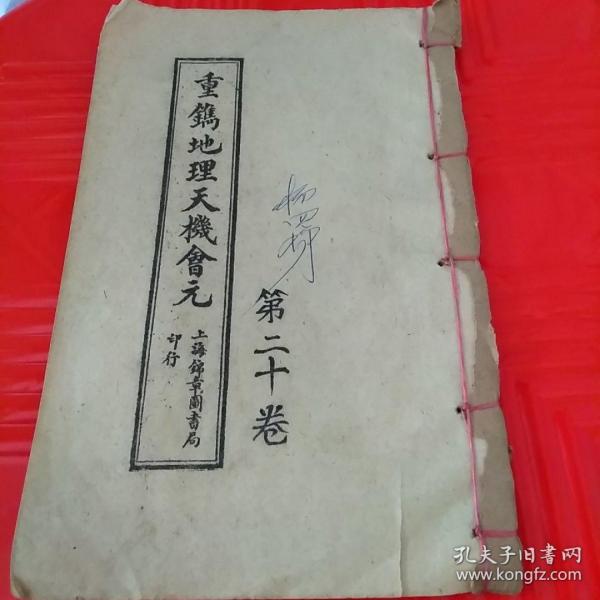 重鐫地理天機會元
上海錦章圖書局
印行
第二十卷
孔夫子旧书网
www.kongfz.com